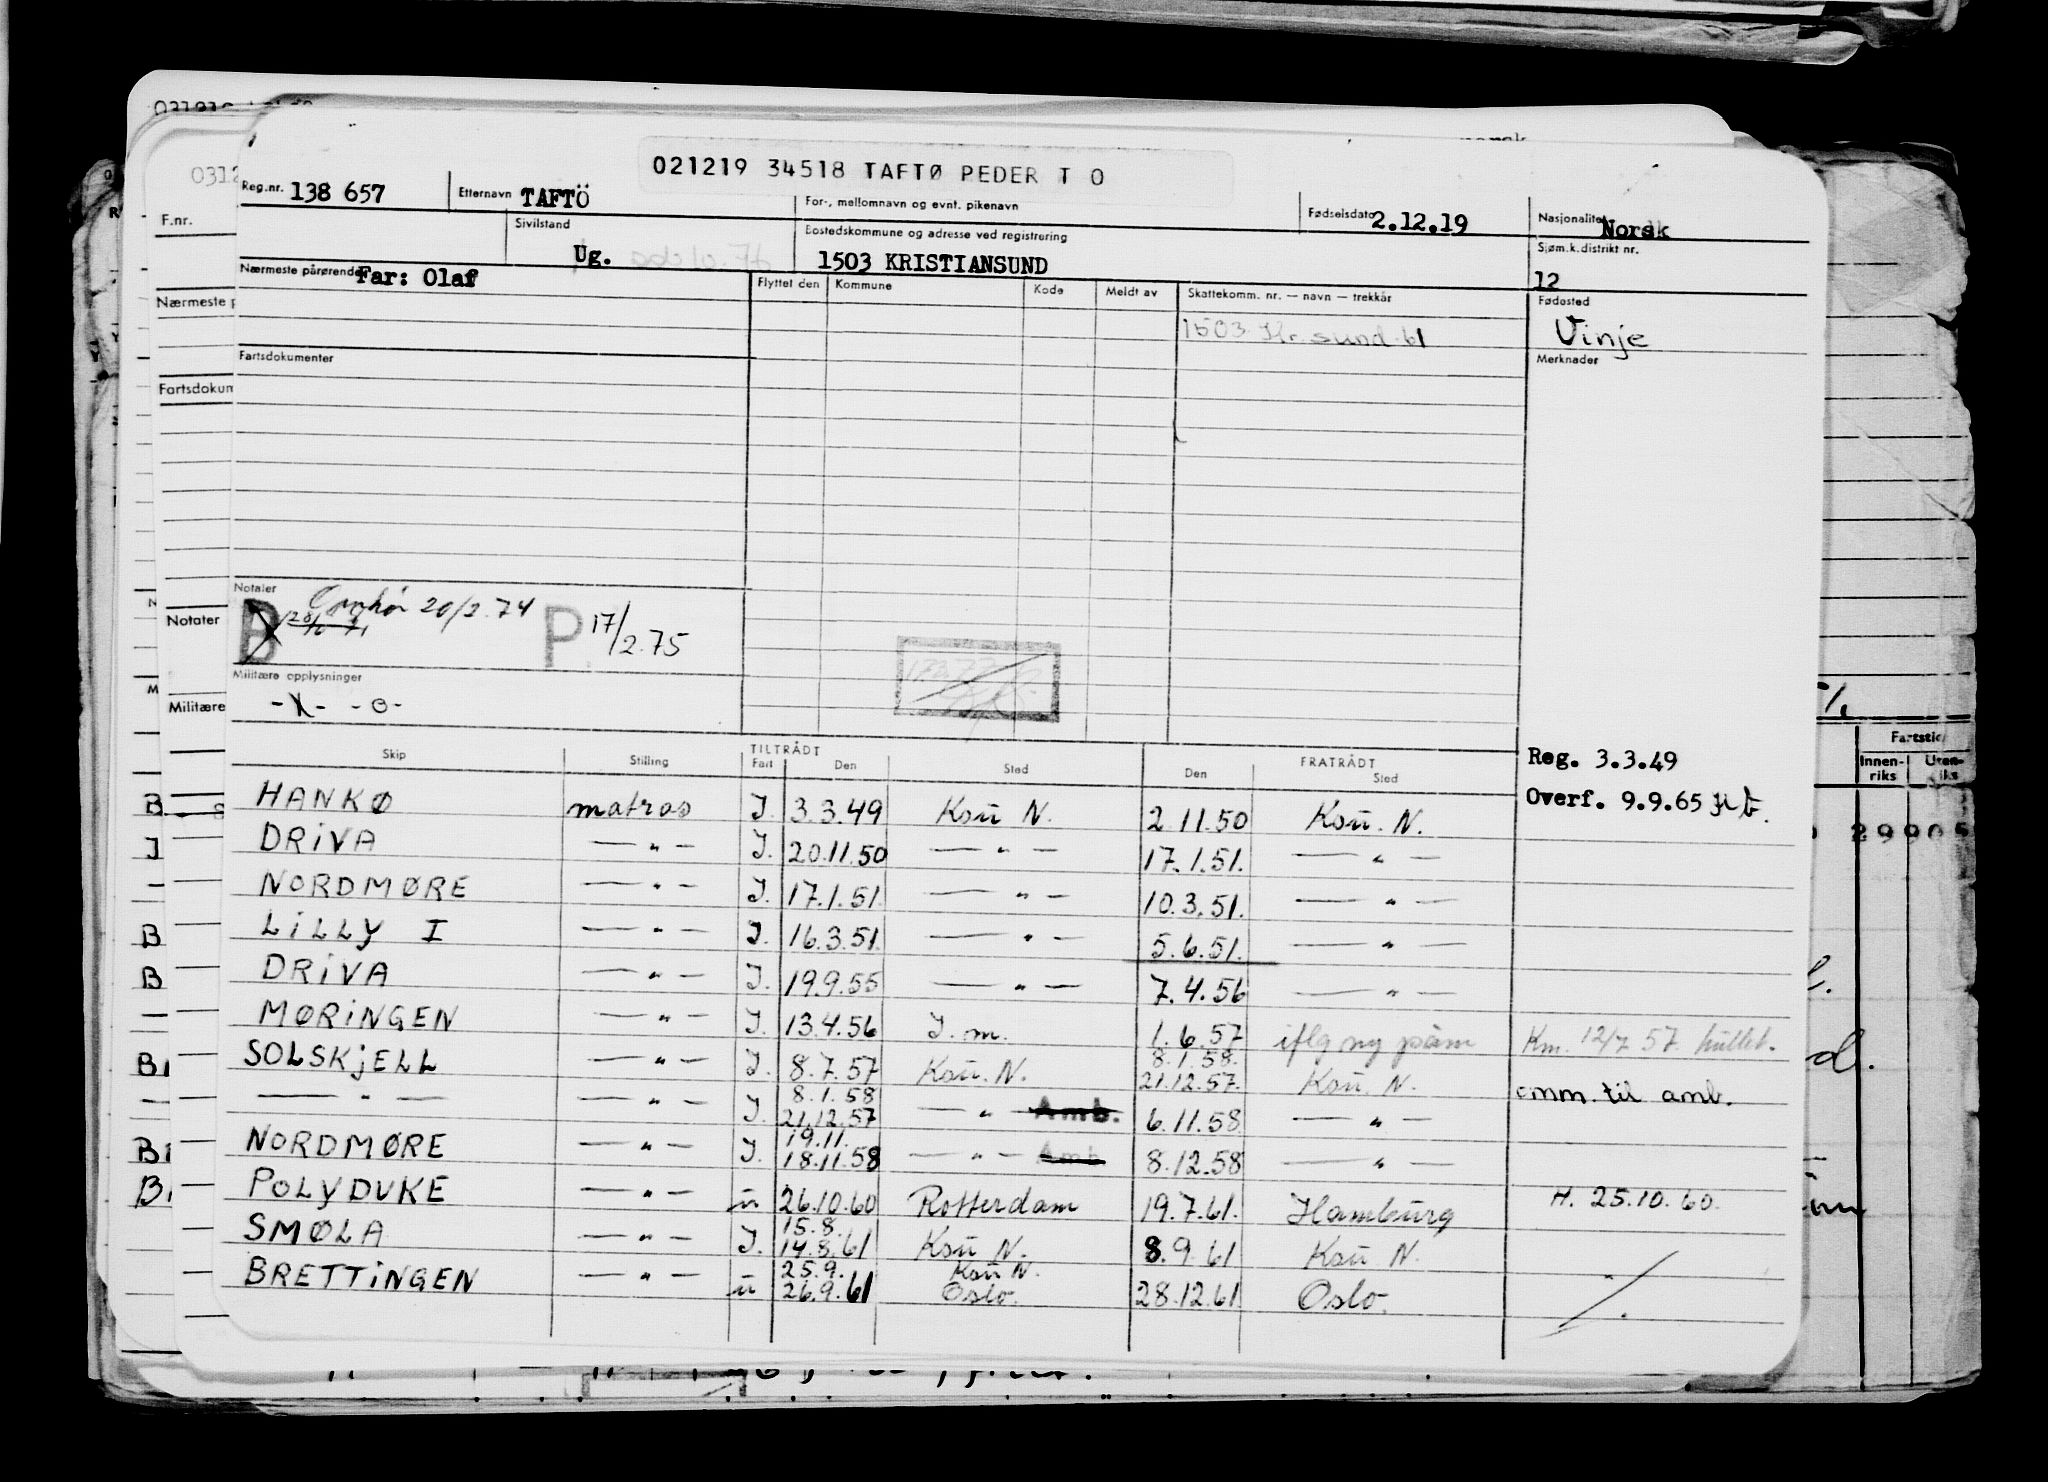 021219 34518 TAFTØ PEDER T O
Reg.nr. 138 657 Etternavn TAFTÖ For-, mellomnavn og evnt. pikenavn Fødselsdato 2.12.19 Nasjonalitet Norsk
F.nr. Sivilstand Ug. Bostedskommune og adresse ved registrering 1503 KRISTIANSUND Sjøm.k.distrikt nr. 12
Nærmeste pårørende Far: Olaf Flyttet den Kommune Kode Meldt av Skattekomm. nr. — navn — trekkår Fødested
1503 Kr. sund 61 Vinje
Fartsdokumenter Merknader
Notater
B 20/2.74 P 17/2.75
Militære opplysninger
-X- -o-
Skip Stilling TILTRÅDT Fart Den Sted FRATRÅDT Den Sted
Reg. 3.3.49
Overf. 9.9.65
HANKØ matros I. 3.3.49 Ksu N. 2.11.50 Ksu. N.
DRIVA — " — I. 20.11.50 — " — 17.1.51. — " —
NORDMØRE — " — I. 17.1.51. — " — 10.3.51. — " —
LILLY I — " — I. 16.3.51. — " — 5.6.51. — " —
DRIVA — " — I. 19.9.55 — " — 7.4.56 — " —
MØRINGEN — " — I. 13.4.56 I. m. 1.6.57 iflg ny Km. 12/7 57
SOLSKJELL — " — I. 8.7.57 Ksu. N. 8.1.58. 21.12.57. Ksu. N. omm. til amb.
— " — — " — I. 8.1.58 21.12.57 — " — Amb. 6.11.58 — " —
NORDMØRE — " — I. 19.11. 18.11.58 — " — Amb 8.12.58 — " —
POLYDUKE — " — u 26.10.60 Rotterdam 19.7.61. Hamburg H. 25.10.60.
SMØLA — " — I. 15.8. 14.8.61 Ksu N. 8.9.61 Ksu N.
BRETTINGEN — " — u 25.9. 26.9.61 Ksu N. Oslo. 28.12.61 Oslo.
Fartstid
Innenriks Utenriks